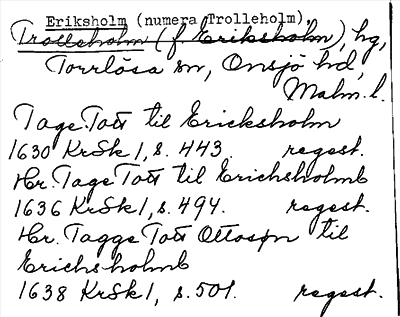 Eriksholm (numera Trolleholm),
Trolleholm (f. Eriksholm), hg,
Torrlösa sn, Onsjö hd,
Malm. l.
Tage Tott til Ericksholm
1630 KrSk 1, s. 443 regest.
Hr. Tage Tott til Erichsholmb
1636 KrSk 1, s. 494. regest.
Hr. Tagge Tott Ottosøn til
Erichsholmb
1638 KrSk 1, s. 501. regest.